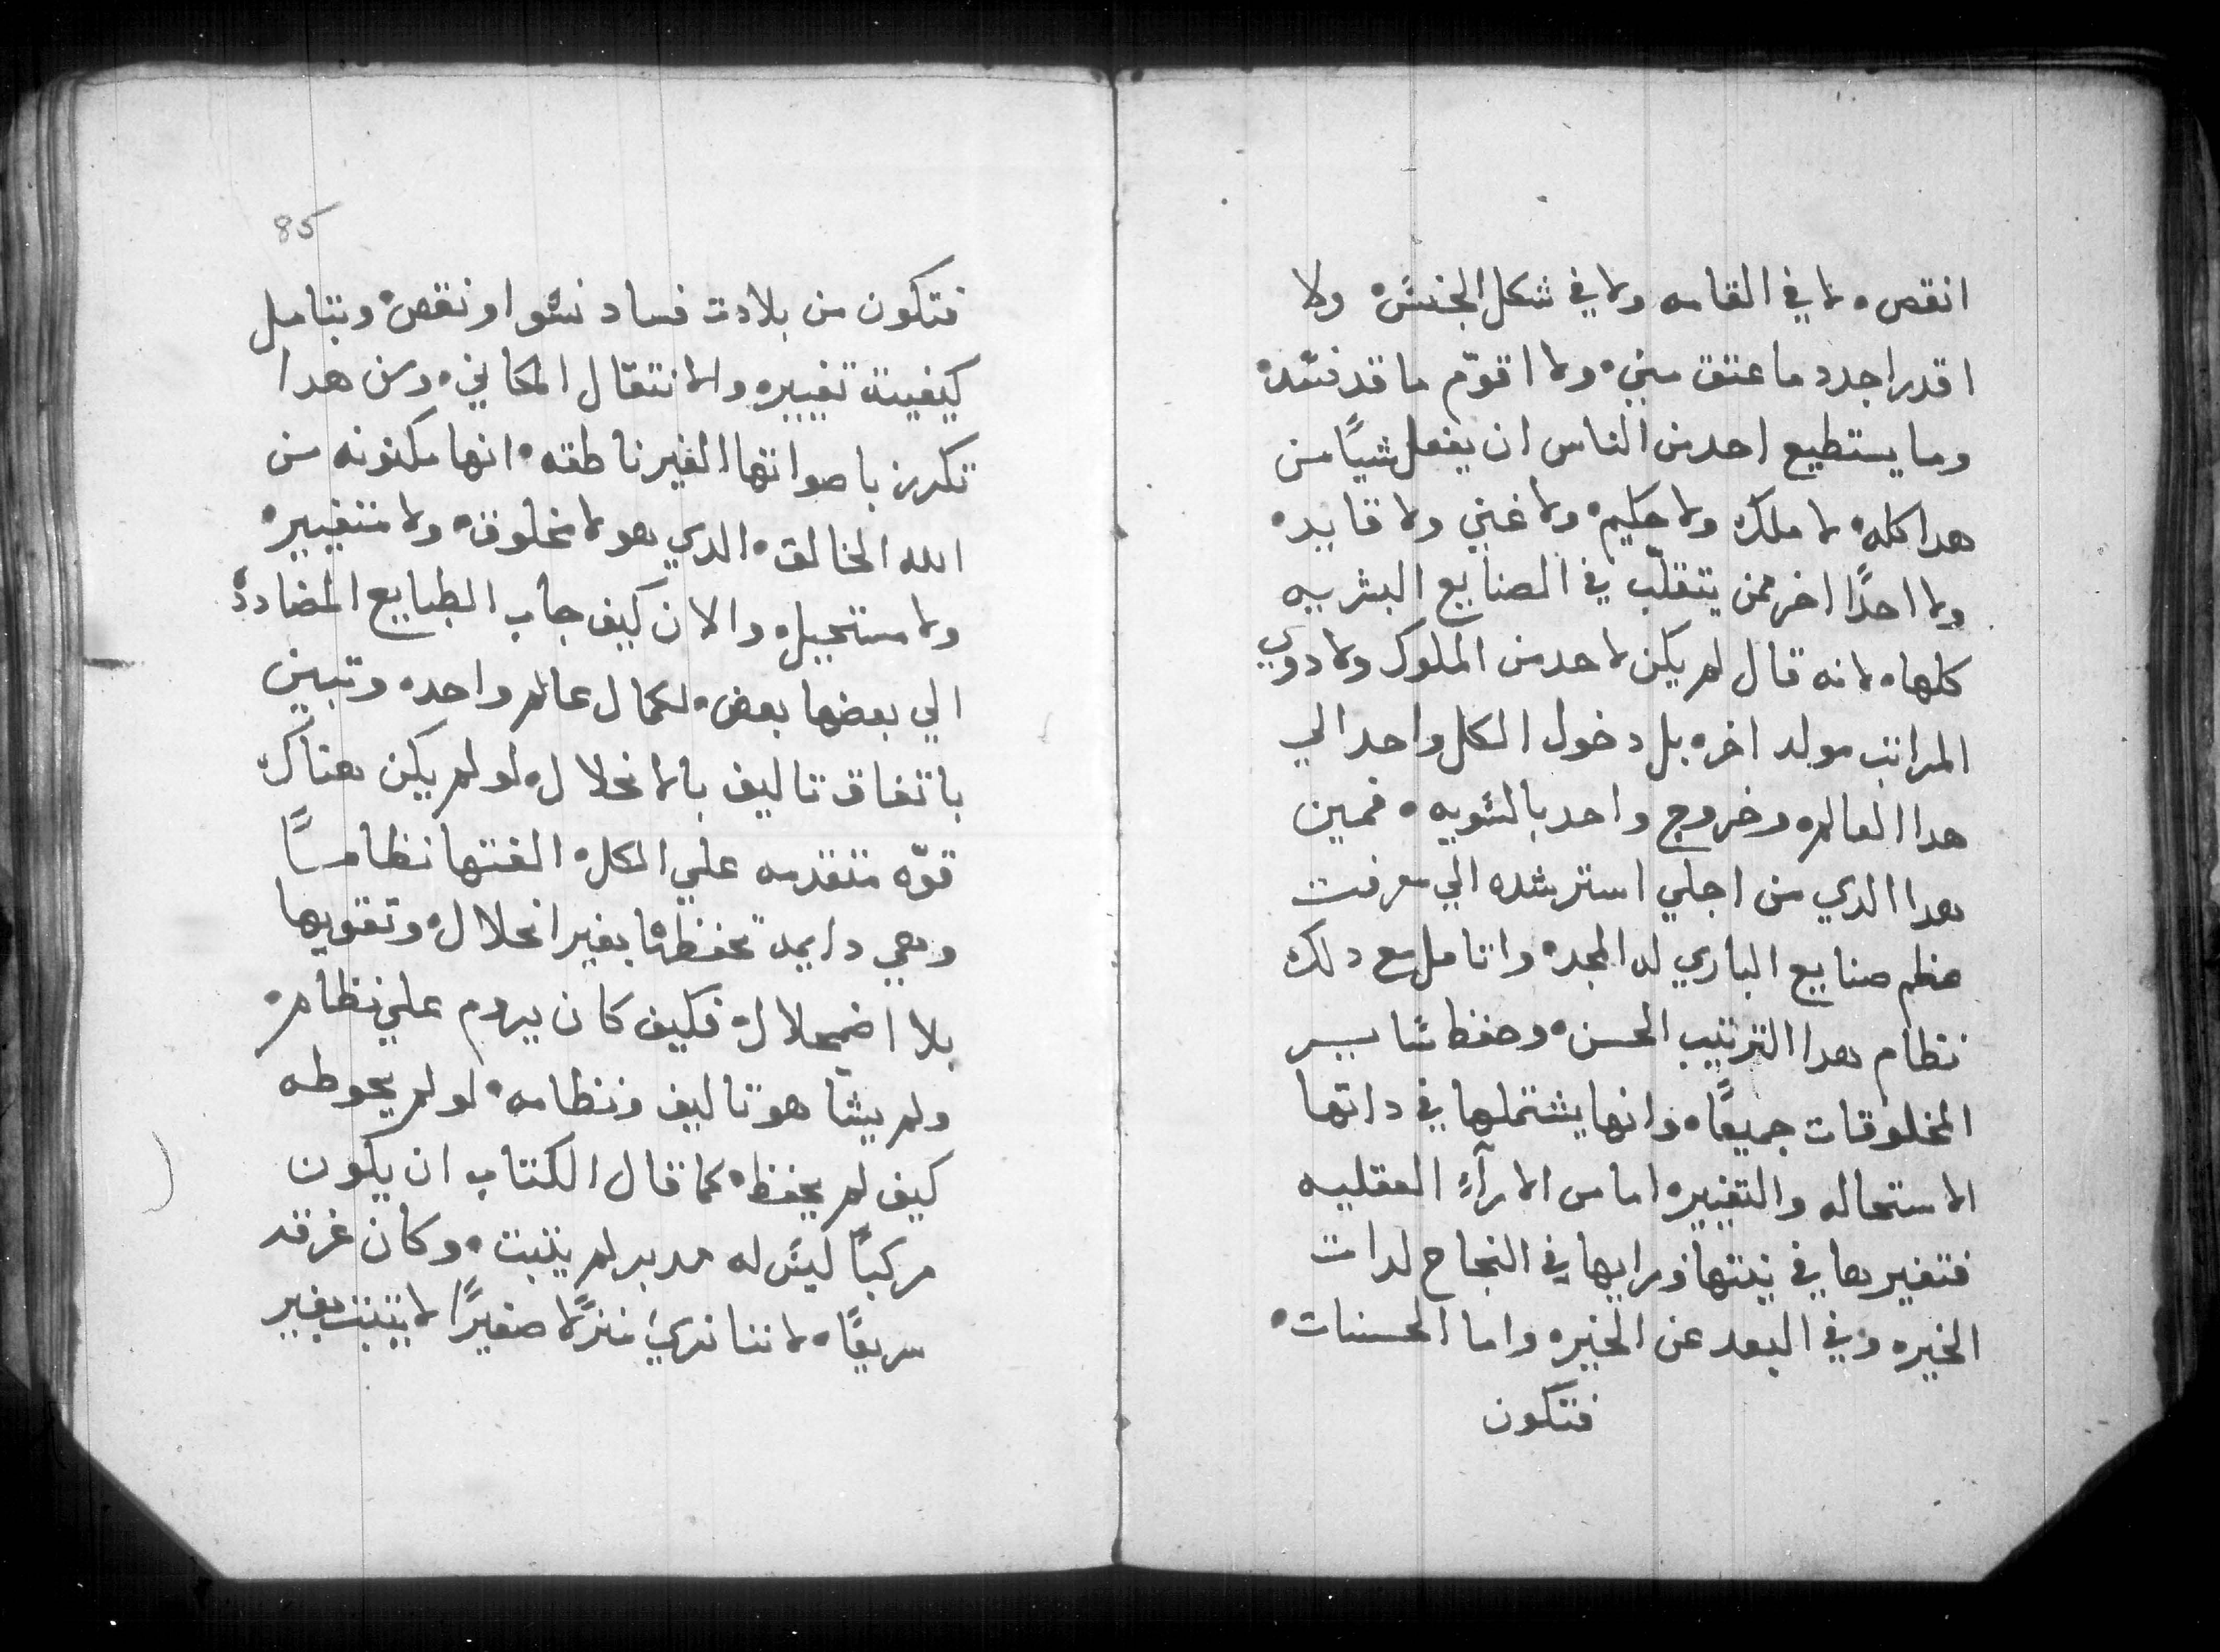 انقص ه لا في القامه ولا في شكل الجنس ه ولا
اقدر اجدد ما عتق مني ه ولا اقوّم ما قد فسد ه
وما يستطيع احد من الناس ان يفعل شيًا من
هدا كله ه لا ملك ولا حكيم ه ولا غني ولا قايد ه
ولا احدًا اخر ممن يتقلّب في الصنايع البشرييه
كلها ه لانه قال لم يكن لاحد من الملوك ولا دوي
المراتب مولد اخر ه بل دخول الكل واحد الي
هدا العالم ه وخروج واحد بالسويه ه فمين
هدا الدي من اجلي استرشده الي معرفت
عظم صنايع الباري له المجد ه واتامل مع دلك
نظام هدا الترتيب الحسن ه وحفظ ساير
المخلوقات جميعًا ه وانها يشتملها في داتها
الاستحاله والتغيير ه اما من الارآءِ العقليه
فتغيرها في نيتها ورايها في النجاح لدات
الخير ه وفي البعد عن الخير ه واما الحسنات ه
فتكون
85
فتكون من بلادت فساد نشوا و نقص ه وبتامل
كيفيتة تغيير ه والانتقال المكاني ه ومن هدا
تكرز باصواتها الغير ناطقه ه انها مكنونه من
الله الخالق ه الدي هو لا مخلوق ه ولا متغيير ه
ولا مستحيل ه والان كيف جاب الطبايع المضادده
الي بعضها بعض ه لكمال عالم واحد ه وتبين
باتفاق تاليف بالانحلال ه لو لم يكن هناك
قوّه متقدمه علي الكل ه الفتها نظامسًا
وهي دايمة تحفظها بغير انحلال ه وتقويها
بلا اضمحلال ه فكيف كان يروم علي نظام ه
ولم يشا هو تاليف ونظامه ه لو لم يحوطه
كيف لم يحفظ ه كما قال الكتاب ان يكون
مركبًا ليس له مدبر لم يتبت ه وكان غرقه
سريعًا ه لاننا نري منزلًا صغيرًا لا يتبت بغير